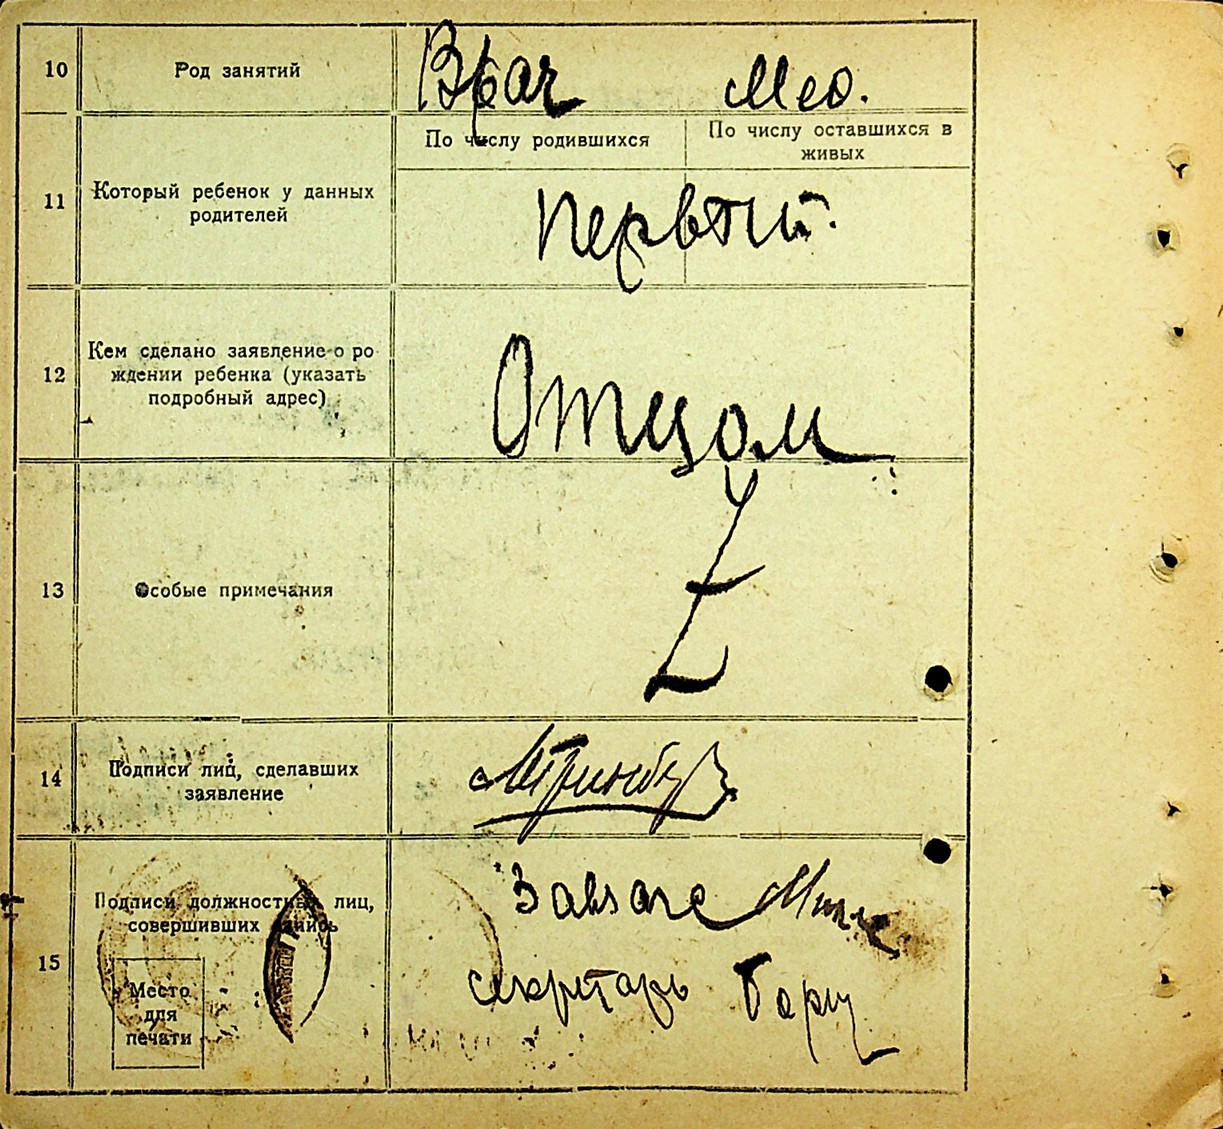 10 Род занятий Врач Мед.
По числу родившихся
По числу оставшихся в
живых
11 Который ребенок у данных
родителей
Первый.
12 Кем сделано заявление о ро
ждении ребенка (указать
подробный адрес)
Отцом
13 Особые примечания
14 Подписи лиц, сделавших
заявление
15 Подписи должностных лиц,
совершивших запись
Завзагс
Секретарь
Место
для
печати